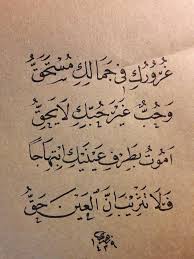 غُرُورُكِ فِي جَمَالِكِ مُسْتَحَقُّ
وَحُبُّ غَيْرِ حُبِّكِ لَا يَحِقُّ
اَمُوتُ بِطَرْفِ عَيْنَيْكِ ابْتِهَاجًا
فَلَا تَثْرِيبَ اَنَّ الْعَيْنَ حَقُّ
١٤٣٩